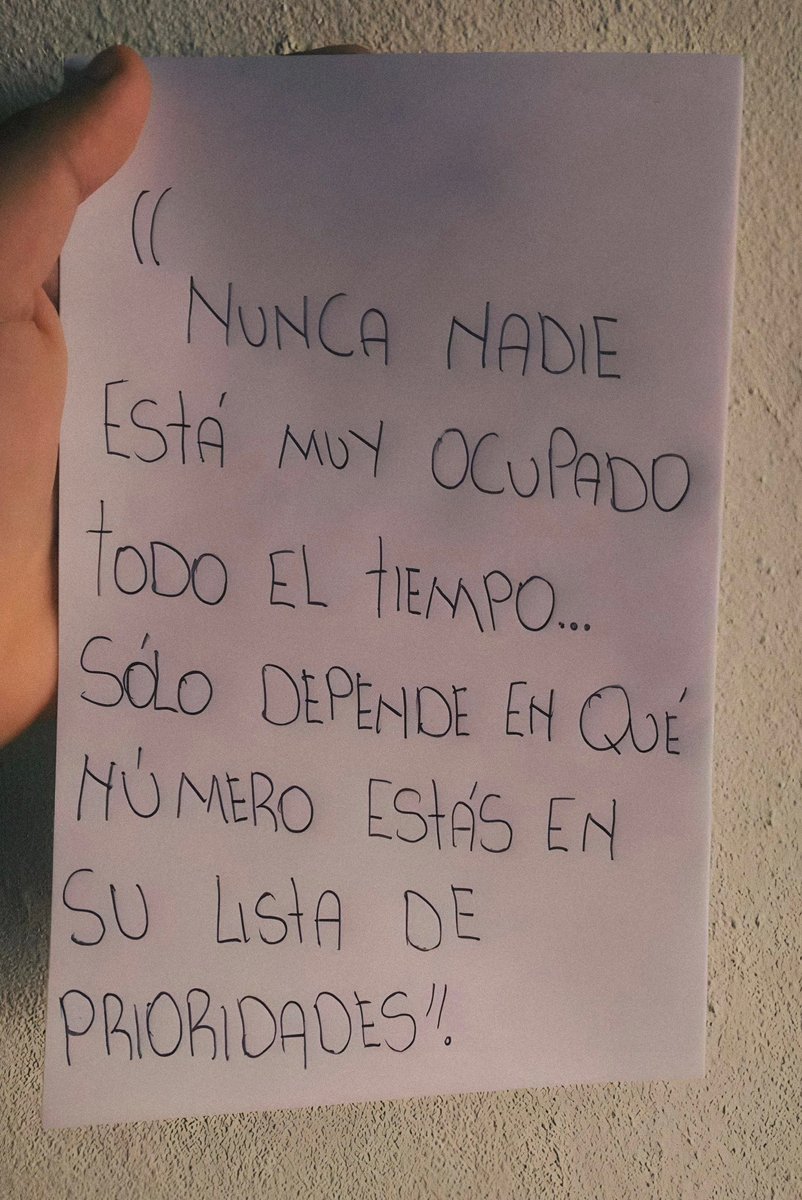 "
NUNCA NADIE
ESTÁ MUY OCUPADO
TODO EL TIEMPO...
SÓLO DEPENDE EN QUÉ
NÚMERO ESTÁS EN
SU LISTA DE
PRIORIDADES".